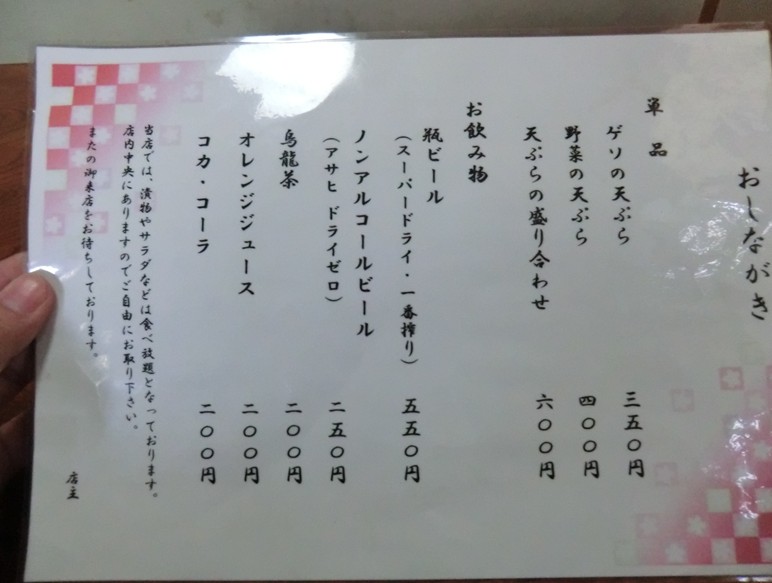 おしながき
単品
ゲソの天ぷら 三五〇円
野菜の天ぷら 四〇〇円
天ぷらの盛り合わせ 六〇〇円
お飲み物
瓶ビール
(スーパードライ・一番搾り) 五五〇円
ノンアルコールビール
(アサヒ ドライゼロ) 二五〇円
烏龍茶 二〇〇円
オレンジジュース 二〇〇円
コカ・コーラ 二〇〇円
当店では、漬物やサラダなどは食べ放題となっております。
店内中央にありますのでご自由にお取り下さい。
またの御来店をお待ちしております。
店主